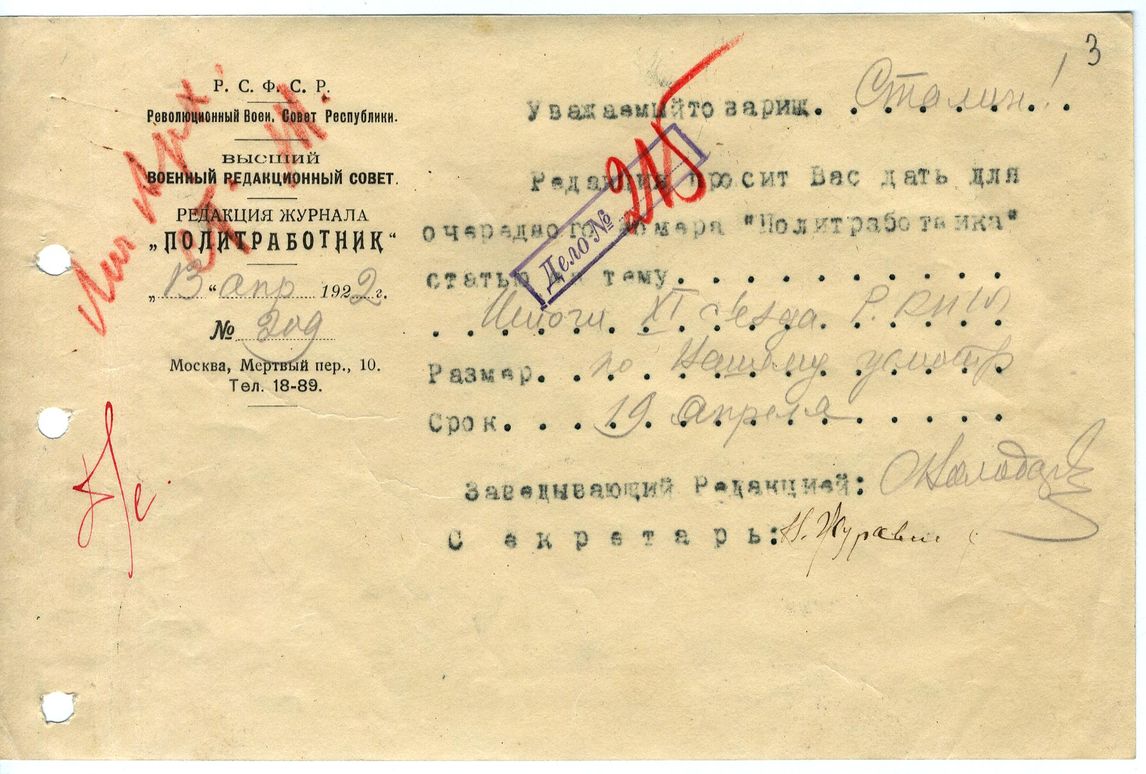 3
Р. С. Ф. С. Р.
Революционный Воен. Совет Республики.
ВЫСШИЙ
ВОЕННЫЙ РЕДАКЦИОННЫЙ СОВЕТ.
РЕДАКЦИЯ ЖУРНАЛА
„ПОЛИТРАБОТНИК“
„13“ апр 1922 г.
№ 209
Москва, Мертвый пер., 10.
Тел. 18-89.
Уважаемый товарищ. Сталин!
Редакция просит Вас дать для
очередного номера "Политработника"
статью на тему
Итоги XI с'езда Р.К.П.
Размер. по Вашему усмотр
Срок. 19 апреля
Заведывающий Редакцией:
Секретарь: Н. Журавл
Дело № 215